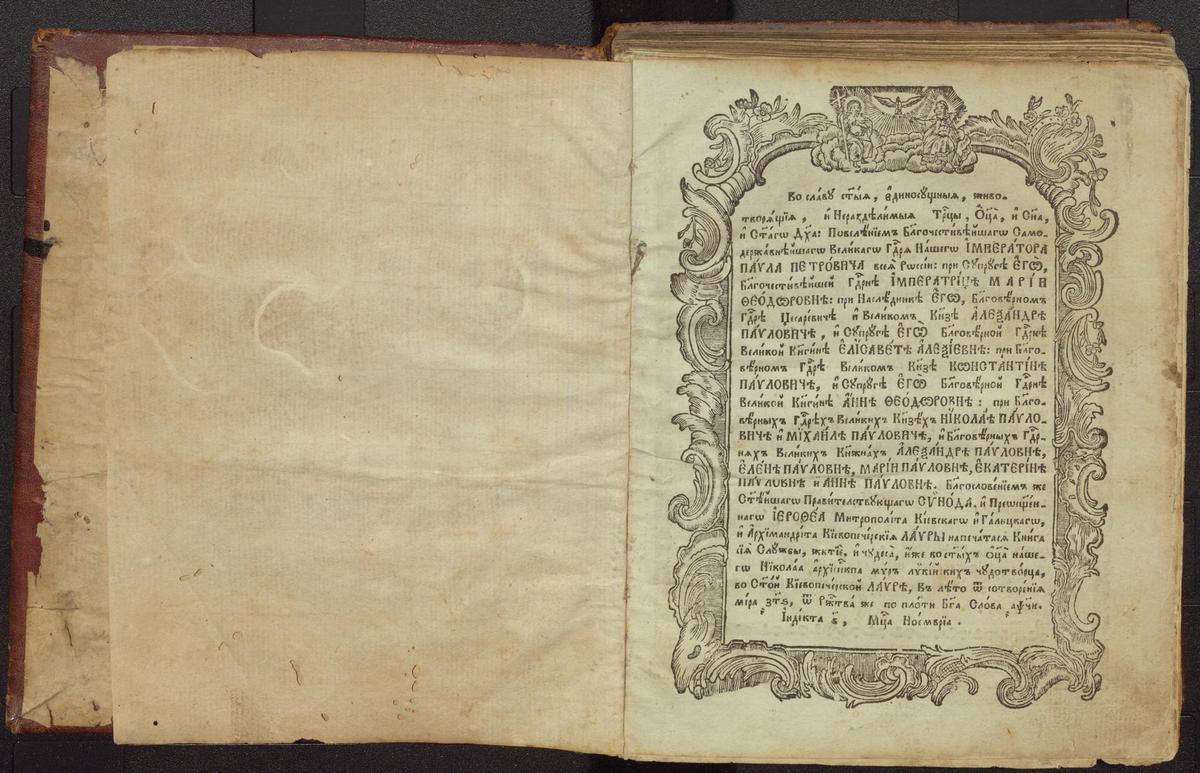 Во сла́ву ст҃ы́ѧ, є҆диносꙋ́щныѧ, живо-
творѧ́щїѧ, и҆ Нераздѣли́мыѧ Трⷪ҇цы, Ѻ҆ц҃а̀, и҆ Сн҃а,
и҆ Ст҃а́гѡ Дх҃а: Повелѣ́нїемъ Бл҃гочести́вѣйшагѡ Само-
держа́внѣйшагѡ Вели́кагѡ Гдⷭ҇рѧ На́шегѡ І҆МПЕРА́ТОРА
ПА́ѴЛА ПЕТРО́ВИЧА всеѧ̀ Рѡссі́и: при Сꙋпрꙋ́гѣ Є҆ГѠ̀,
Бл҃гочести́вѣйшей Гдⷭ҇рнѣ І҆МПЕРАТРИ́ЦѢ МАРІ́И
ѲЕО́ДѠРОВНѢ: при Наслѣ́дникѣ Є҆ГѠ̀, Бл҃говѣ́рномъ
Гдⷭ҇рѣ Цесаре́вичѣ и҆ Вели́комъ Кн҃зѣ А҆ЛЕѮА́НДРѢ
ПА́ѴЛОВИЧѢ, и҆ Сꙋпрꙋ́гѣ Є҆ГѠ̀ Бл҃говѣ́рной Гдⷭ҇рнѣ
Вели́кой Кн҃ги́нѣ Є҆ЛІСАВЕ́ТѢ А҆ЛЕѮІ́ЕВНѢ: при Бл҃го-
вѣ́рномъ Гдⷭ҇рѣ Вели́комъ Кн҃зѣ КѠНСТАНТІ́НѢ
ПА́ѴЛОВИЧѢ, и҆ Сꙋпрꙋ́гѣ Є҆ГѠ̀ Бл҃говѣ́рной Гдⷭ҇рнѣ
Вели́кой Кн҃ги́нѣ А҆́ННѢ ѲЕО́ДѠРОВНѢ: при Бл҃го-
вѣ́рныхъ Гдⷭ҇рѣхъ Вели́кихъ Кн҃зѣхъ НІКОЛА́Ѣ ПА́ѴЛО-
ВИЧѢ и҆ МІХАИ́ЛѢ ПА́ѴЛОВИЧѢ, и҆ Бл҃говѣ́рныхъ Гдⷭ҇р-
нѧхъ Вели́кихъ Кн҃жна́хъ А҆ЛЕѮА́НДРѢ ПА́ѴЛОВНѢ,
Є҆ЛЕ́НѢ ПА́ѴЛОВНѢ, МАРІ́И ПА́ѴЛОВНѢ, Є҆КАТЕРІ́НѢ
ПА́ѴЛОВНѢ и҆ А҆́ННѢ ПА́ѴЛОВНѢ. Бл҃гослове́нїемъ же
Ст҃ѣ́йшагѡ Прави́тельствꙋющагѡ СѴНО́ДА. и҆ Преѡсщ҃е́н-
нагѡ І҆ЕРОѲЕ́А Митрополі́та Кі́евскагѡ и҆ Га́лицкагѡ,
и҆ А҆рхімандрі́та Кїевопече́рскїѧ ЛА́ѴРЫ напеча́тасѧ Кни́га
сїѧ̀ Слꙋ́жбы, житїѐ, и҆ чꙋдеса̀, и҆́же во ст҃ы́хъ Ѻ҆ц҃а̀ на́ше-
гѡ Нїкола́а а҆рхїепⷭ҇кпа мѵръ лѷкі́йскихъ чꙋдотво́рца,
во Ст҃о́й Кїевопече́рской ЛА́ѴРѢ, Въ лѣ́то ѿ сотворе́нїѧ
мі́ра ҂зт҃ѕ, ѿ Ржⷭ҇тва́ же по пло́ти Бг҃а Сло́ва ҂аѱч҃и.
І҆нді́кта в҃, Мцⷭ҇а Ное́мврїа.